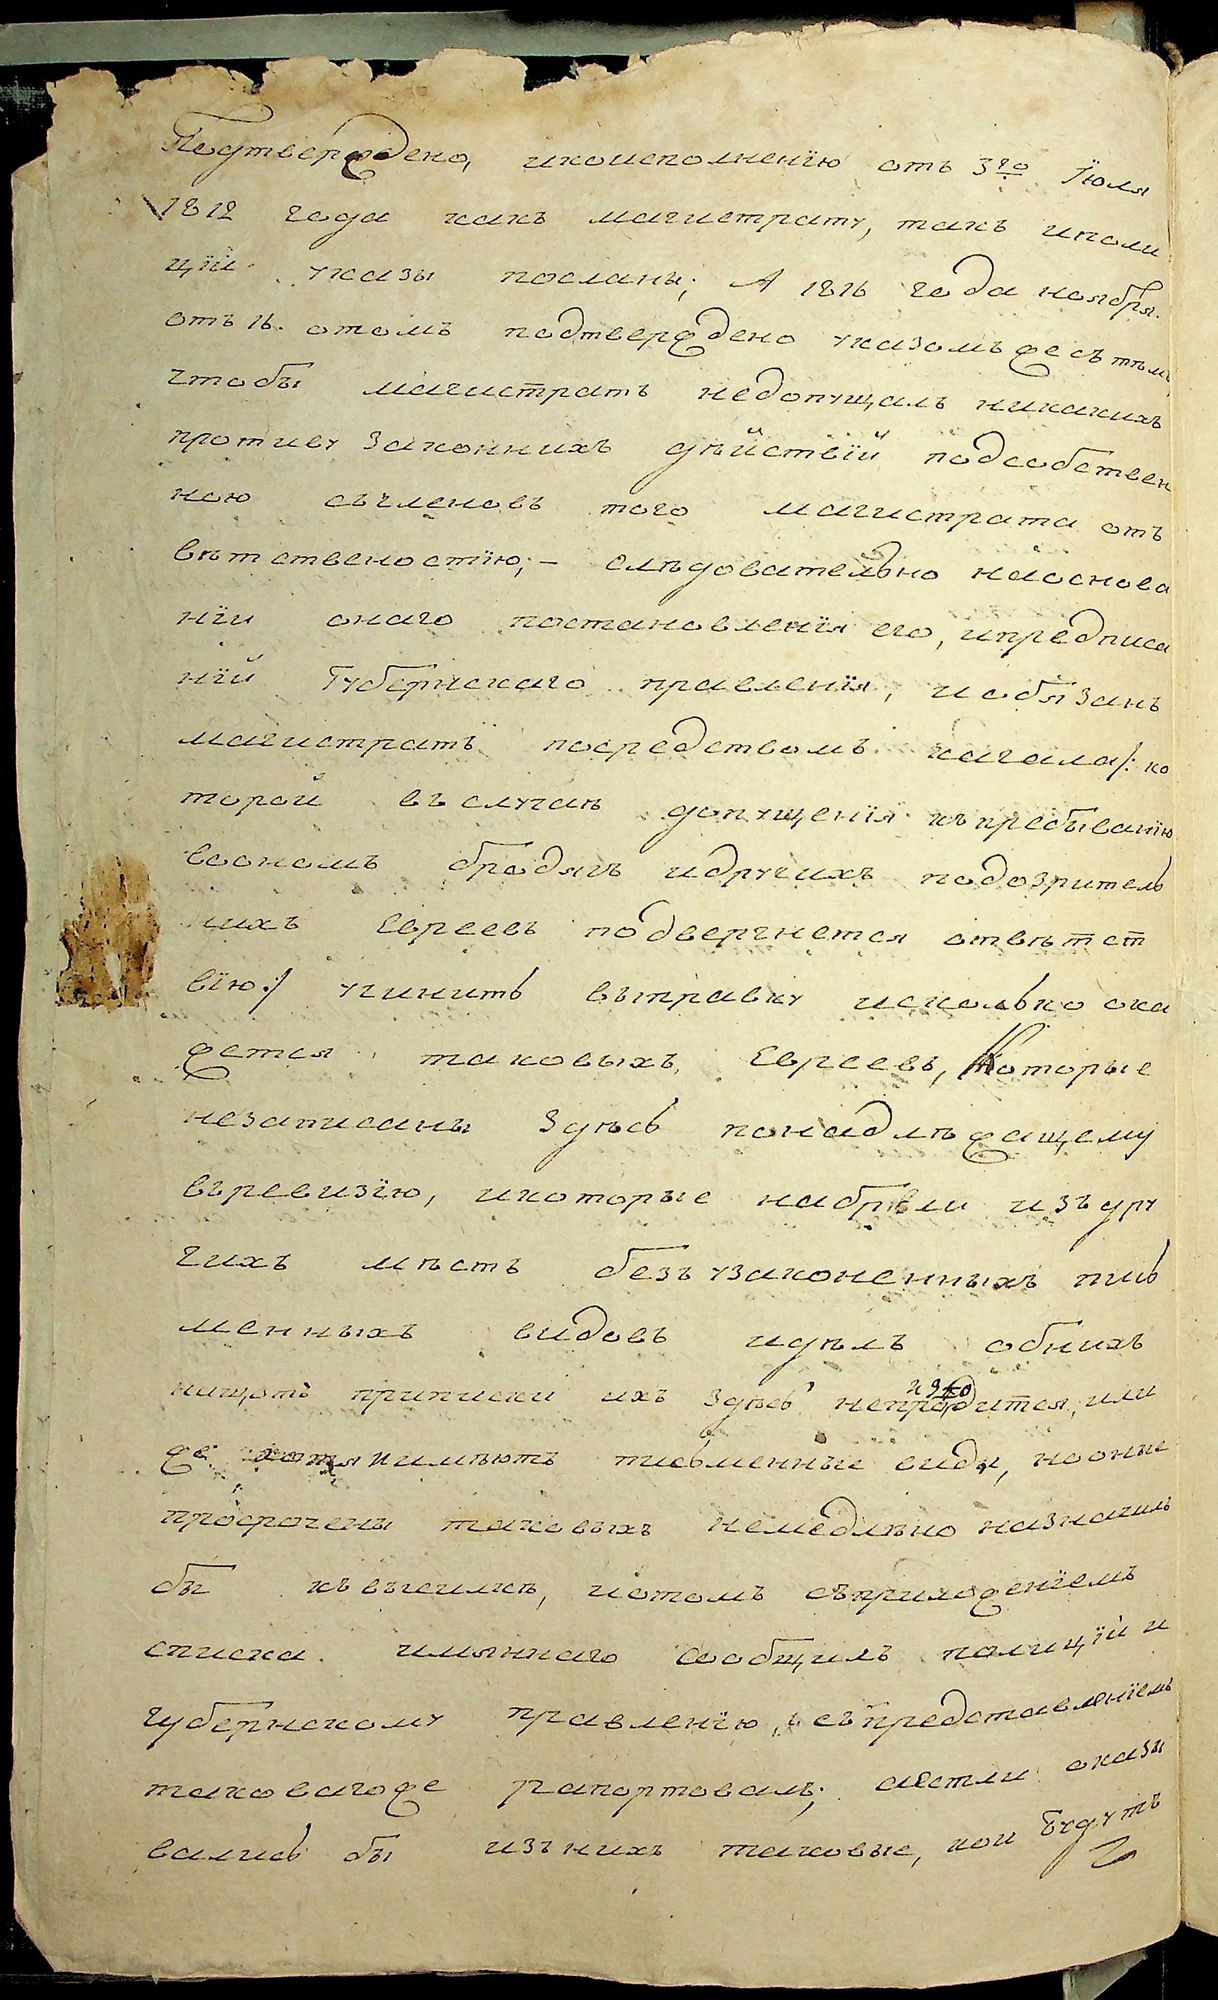 Подтверждено, икоисполненїю отъ 3го Їюля
1812 года какъ магистрату, такъ иполи
цїи указы посланы; А 1816 года ноября.
отъ 16. отомъ подтверждено указомъ жесъ тѣмъ,
чтобы магистратъ недопущалъ никакихъ
противу законнихъ дѣйствїй подсобствен
ною съчленовъ того магистрата отъ
вѣтственостїю; — слѣдовательно наоснова
нїи онаго постановленїя его, ипредписа
нїй Губернскаго правленїя, иобязанъ
магистратъ посредствомъ кагала /: ко
торой вьслучаѣ допущенїя къпребыванїю
воономъ бродягъ идругихъ подозритель
нихъ Евреевъ подвергнется отвѣтст
вїю :/ учинить выправку исколько ока
жется таковыхъ Евреевъ, Которые
незаписаны здѣсь понадлѣжащему
въревизїю, икоторые набрели изъдру
гихъ мѣстъ безъузаконенныхъ пись
менныхъ видовъ идѣлъ обнихъ
нащотъ приписки ихъ здѣсь непроизводится, или
же хотя иимѣютъ письменные види, нооные
просрочены таковыхъ немедлѣно назначилъ
бы къвысилкѣ, иотомъ съприложенїемъ
списка имяннаго сообщилъ полицїи и
губернскому правленїю, съпредставленїемъ
таковагоже рапортовалъ; аестли оказы
вались бы изънихъ таковые, кои будутъ